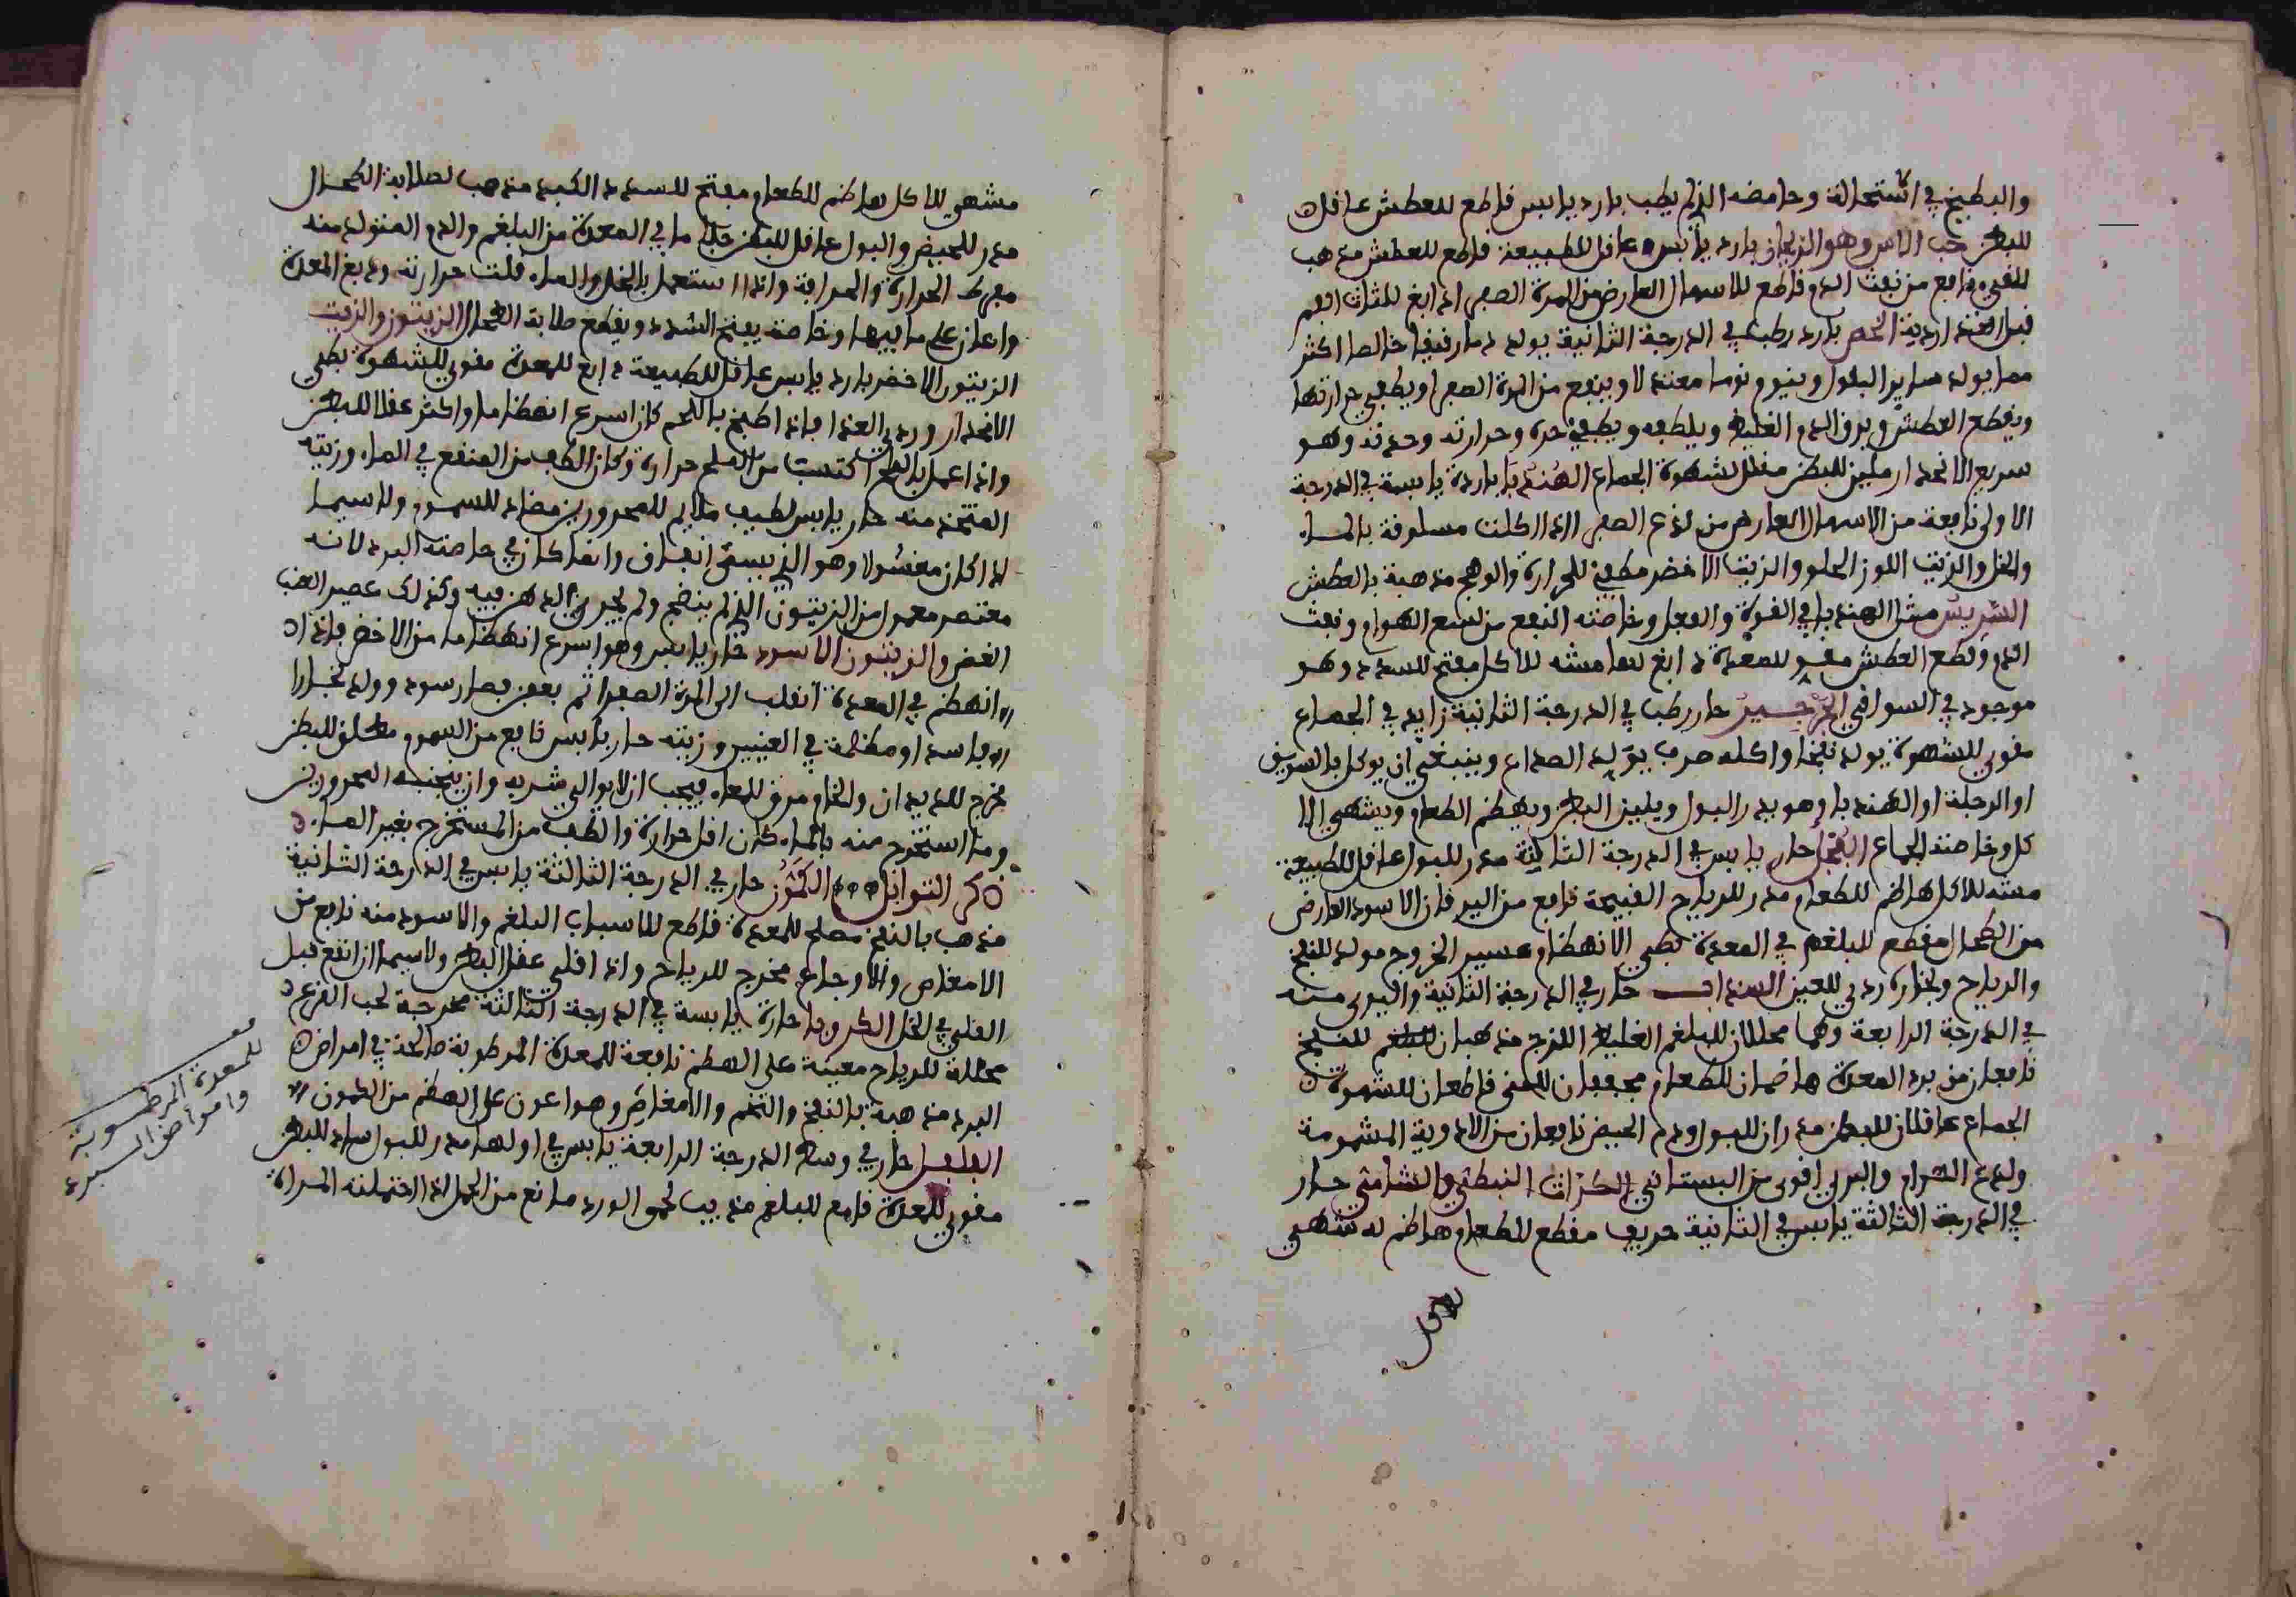 والبطيخ في استحالة وحامضه الذي لم يطب بارد يابس فاطع للعطش عافل
للبطن حب الاس وهو الريحان بارد يابس عافل للطبيعة فاطع للعطش مذهب
للفيء نافع من نفث الدم فاطع للاسهال العارض من المرة الصفرا دابغ للثات الفم
بارد رطب في الدرجة الثانية يولد دما رفيفا خالصا اكثر
مما يولد ساير البفول وينوم نوما معتدلا وينفع من المرة الصفرا ويطفي حرارتها
ويفطع العطش ويرق الدم الغليظ ويلطفه ويطفي حره وحرارته وحدته وهو
سريع الانحدار ملين للبطن مفلل لشهوة الجماع الهندبا باردة يابسة في الدرجة
الاولى نافعة من الاسهال العارض من لذع الصفرا اذا اكلت مسلوفة بالماء
والخل والزيت اللوز الحلو والزيت الاخضر مطفية للحرارة والوهج مذهبة بالعطش
الشريس مثل الهندبا في الفوة والفعل وخاصته النفع من لسع الهوام ونفث
الدم وفطع العطش مفو للمعدة دابغ لها مشه للاكل مفتح للسدد وهو
موجود في السواقي الجرجير حار رطب في الدرجة الثانية زايد في الجماع
مفوي للشهوة يولد نفخا واكله صرف يولد الصداع وينبغي ان يوكل بالشريس
او الرجلة او الهندبا وهو يدر البول ويلين البطن ويهظم الطعام ويشهي الا
كل وخاصته الجماع الفجل حار يابس في الدرجة الثالثة مدر للبول عافل للطبيعة
مشه للاكل هاظم للطعام مدر للرياح الفبيحة نافع من اليرفان الاسود العارض
من الطحال مفطع للبلغم في المعدة بطي الانهظام عسير الخروج مولد للنفخ
والرياح وبخاره ردي للعين السذاب حار في الدرجة الثانية والبري منه
في الدرجة الرابعة وهما محللان للبلغم الغليظ اللزج مذهبان للبلغم للنفخ
نافعان من برد المعدة هاضمان للطعام مجففان للمني فاطعان للشهوة
الجماع عافلان للبطن مدران للبول ودم الحيض نافعان من الادوية المشمومة
ولدغ الهوام والبري افوى من البستاني الكرات النبطي والشامي حار
في الدرجة الثالثة يابس في الثانية حريف مفطع للطعام هاظم له شهي
مشهي للاكل هاظم للطعام مفتح للسدد الكبد مذهب لصلابة الطحال
مدر للحيض والبول عافل للبطن جلاء ما في المعدة من البلغم والدم المتولد منه
مفرط الحرارة والحرافة واذا استعمل بالخل والماء فلت حرارته ودبغ المعدة
واعان على ما فيها وخاصة يفتح السدد ويفطع صلابة الطحال الزيتون والزيت
الزيتون الاخضر بارد يابس عافل للطبيعة دابغ للمعدة مفوي للشهوة بطي
الانحدار وردي الغذا فاذا طبخ باللحم كان اسرع انهظاما واكثر عفلا للبطن
واذا عمل بالملح اكتسب من الملح حرارة وكان الطف من المنفع في الماء وزيته
المتخذ منه حار يابس لطيف ملايم للمحرورين مضاد للسموم ولاسيما
اذا كان مغسولا وهو الذي يسمى انفاق وانما كان في خاصته البرد لانه
معتصر معمول من الزيتون الذي لم ينضج ولم يجر الدهن فيه وكذلك عصير العنب
الغض والزيتون الاسود حار يابس وهو اسرع انهظاما من الاخضر فاذا
انهظم في المعدة انفلب الى المرة الصفرا ثم يعفن فصار سود وولد بخارا
فاسدا ومظلمة في العينين وزيته حار يابس نافع من السموم مطلق للبطن
مخرج للديدان والخام مرق للمعاء فيجب ان لا يوالى شربه وان يجتنبه المحرورين
وما استخرج منه بالماء كان افل حرارة والطف من المستخرج بغير الماء
ذكر التوابل الكمون حار في الدرجة الثالثة يابس في الدرجة الثانية
مذهب بالنفخ مصلح للمعدة فاطع للاسباب البلغم والاسود منه نافع من
الامغاص والاوجاع مخرج للرياح واذا فلي عفل البطن ولاسيما ان انفع فبل
الفلي في الخل الكرويا حارة يابسة في الدرجة الثالثة مخرجة لحب الفرع
محللة للرياح معينة على الهظم نافعة للمعدة المرطوبة صالحة في امراض
البرد مذهبة بالنفخ والتخم والامغاص وهو اعون على الهظم من الكمون
الفلفل حار في وسط الدرجة الرابعة يابس في اولها مدر للبول للبطن
مفوي للمعدة فامع للبلغم مذيب لحمى الورد مانع من الحمل اذا احتملته المراة
للمعدة المرطوبة
وامراض البرد